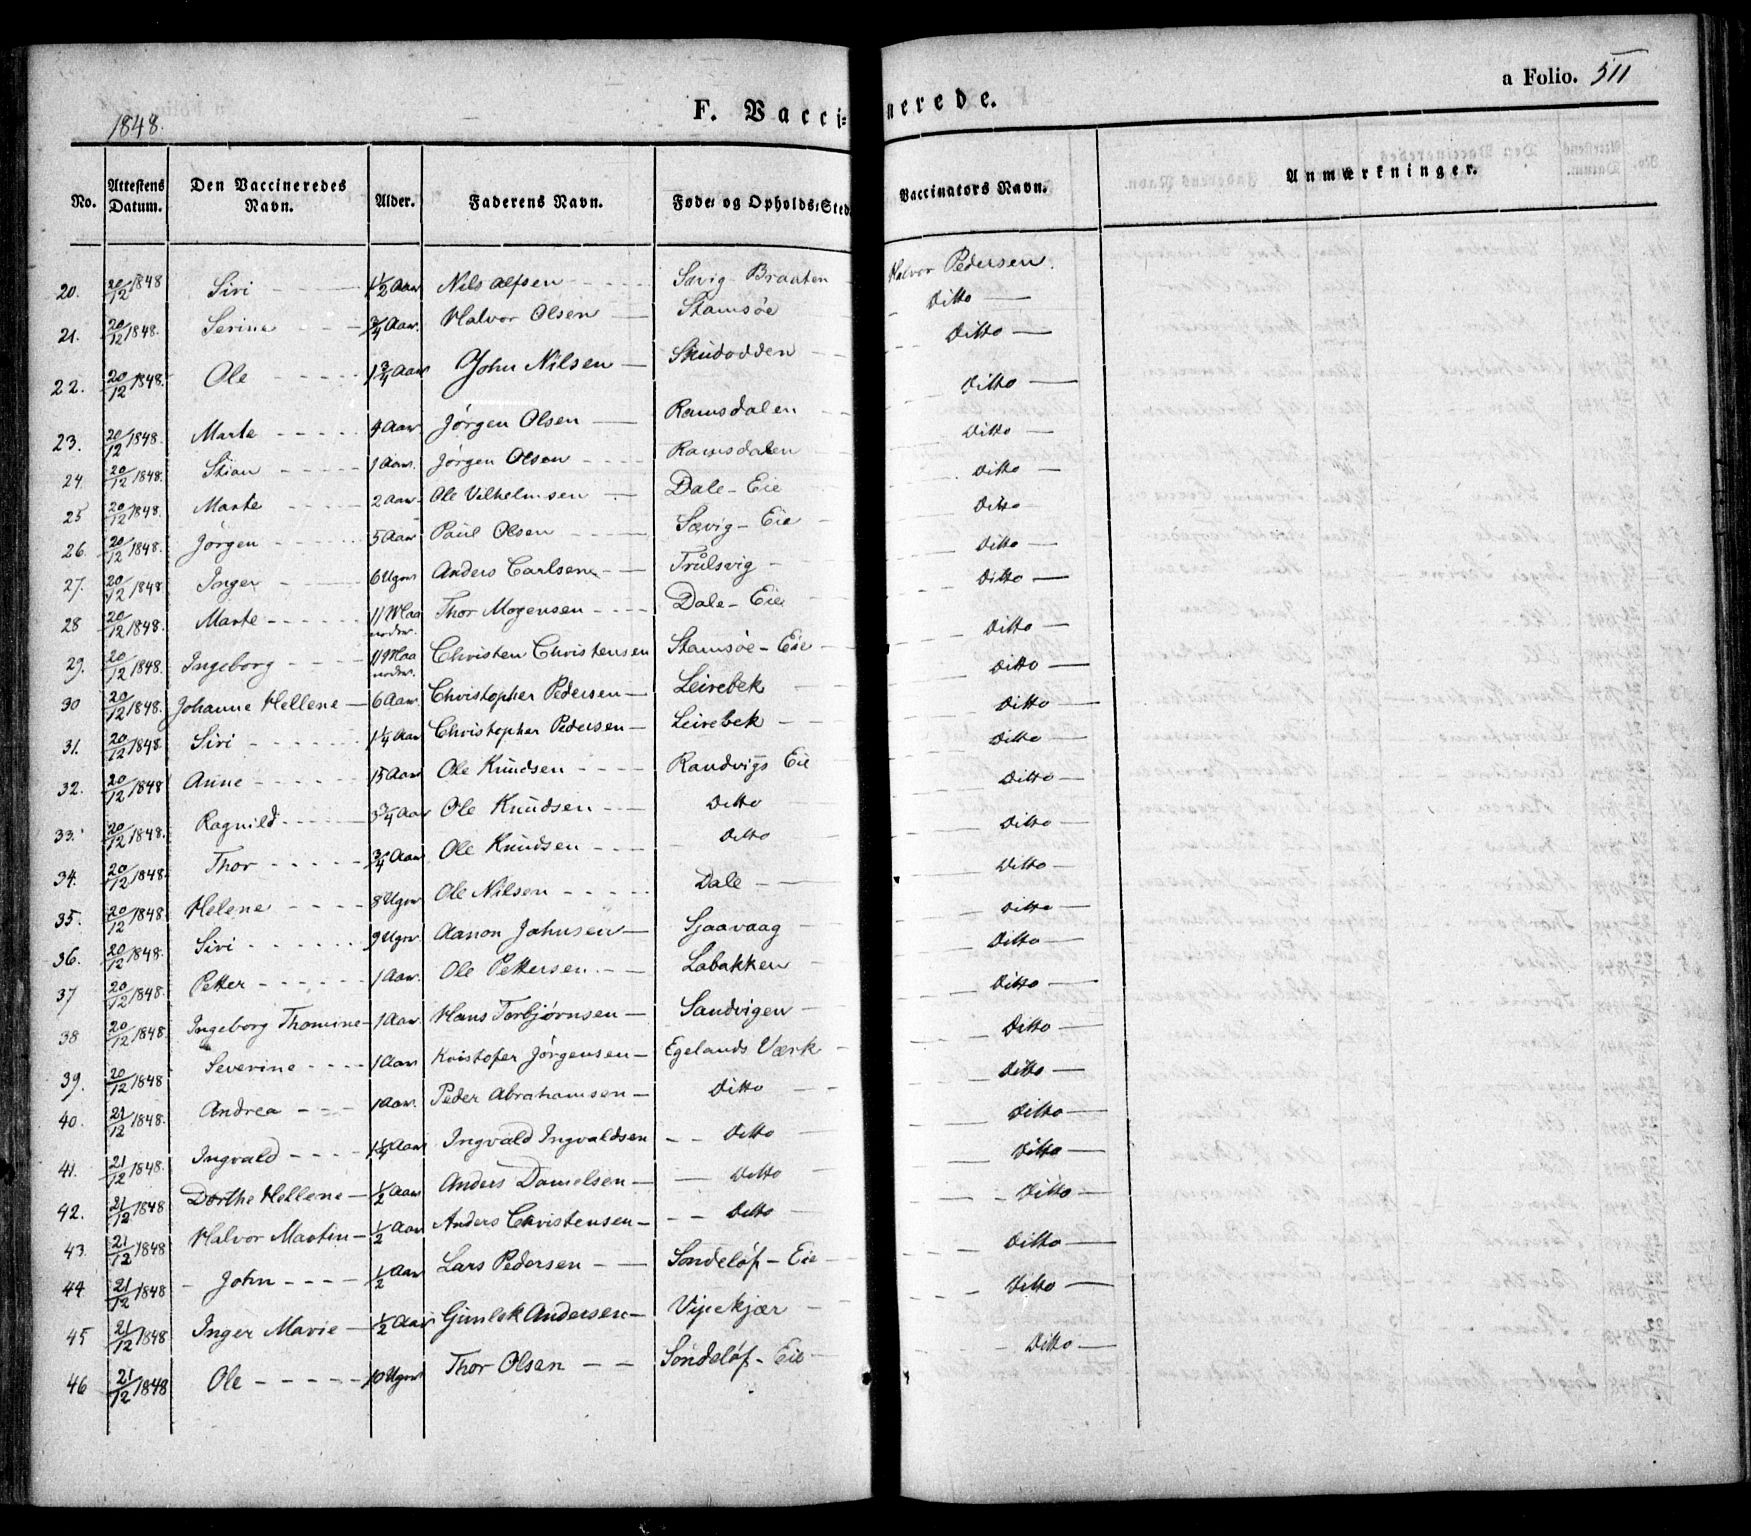 1848.
F. Vaccinerede.
a Folio. 511
No. Attestens Datum. Den Vaccineredes Navn. Alder. Faderens Navn. Føde- og Opholds-Sted. Vaccinators Navn. Anmærkninger.
20. 20/12 1848 Siri 1½ Aar Nils Alfsen Sævig-Braaten Halvor Pedersen.
21. 20/12 1848. Serine ¾ Aar. Halvor Olsen Stamsøe Ditto
22. 20/12 1848. Ole 1¾ Aar John Nilsen Skudodden Ditto
23. 20/12 1848. Marte 4 Aar Jørgen Olsen Ramsdalen Ditto
24. 20/12 1848. Stian 1 Aar. Jørgen Olsen Ramsdalen Ditto
25 20/12 1848. Marte 2 Aar. Ole Vilhelmsen Dale-Eie Ditto
26. 20/12 1848. Jørgen 5 Aar Paul Olsen Sævig-Eie Ditto
27. 20/12 1848. Inger 6 Uger Anders Carlsen Trulsvig Ditto
28 20/12 1848. Marte 11 Maaneder. Thor Mogensen Dale-Eie Ditto
29. 20/12 1848. Ingeborg 11 Maaneder. Christen Christensen Stamsøe-Eie Ditto
30 20/12 1848. Johanne Hellene 6 Aar Christopher Pedersen Leirebek Ditto
31. 20/12 1848. Siri 1¼ Aar Christopher Pedersen Leirebek Ditto
32. 20/12 1848 Anne 15 Aar Ole Knudsen Randvigs Eie Ditto
33. 20/12 1848. Ragnild 3¾ Aar Ole Knudsen Ditto Ditto
34. 20/12 1848. Thor ¾ Aar Ole Knudsen Ditto Ditto
35. 20/12 1848. Helene 8 Uger Ole Nilsen Dale Ditto
36. 20/12 1848. Siri 9 Uger Aanon Johnsen Sjaavaag Ditto
37 20/12 1848. Petter 1 Aar. Ole Pettersen Labakken Ditto
38 20/12 1848. Ingeborg Thomine 1 Aar. Hans Torbjørnsen Sandvigen Ditto
39. 20/12 1848 Severine 1 Aar Kristofer Jørgensen Egelands Værk Ditto
40. 21/12 1848. Andrea 1 Aar. Peder Abrahamsen Ditto Ditto
41. 21/12 1848. Ingvald 1¼ Aar Ingvald Ingvaldsen Ditto Ditto
42. 21/12 1848 Dorthe Hellene ½ Aar Anders Danielsen Ditto Ditto
43. 21/12 1848 Halvor Martin ½ Aar Anders Christensen Ditto Ditto
44 21/12 1848 John ½ Aar Lars Pedersen Sondeløf-Eie Ditto
45 21/12 1848 Inger Marie ½ Aar Andersen Vipekjær Ditto
46 21/12 1848 Ole 10 Uger Thor Olsen Sondeløf-Eie Ditto